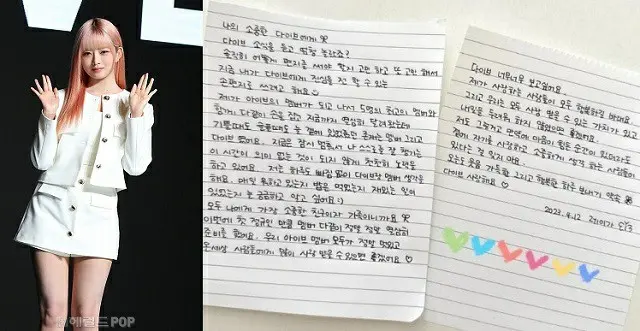 VE
헤럴드POP
나의 소중한 다이브에게
다이브 소식을 듣고 많이 놀랐죠?
솔직히 어떻게 편지를 써야 할지 고민하고 또 고민해서
지금 내가 다이브에게 진심을 전할 수 있는
손편지를 쓰려고 해요
제가 아이브의 멤버가 되고 나서 5명의 최고의 멤버와
함께 다같이 손을 잡고 지금까지 열심히 달려왔는데
기쁠때도 슬플때도 늘 곁에 있었던건 존재는 멤버 그리고
다이브 였어요. 지금은 잠시 멈춰서 나 스스로를 잘 챙기는
이 시간이 의미 없는 것이 되지 않게 천천히 노력중
하고 있어요. 저는 하루도 빠짐 없이 다이브랑 멤버 생각을
해요. 매일 뭐하고 있는지 밥은 먹었는지 재밌는 일이
있었는지 늘 궁금하고 알고 싶어요:)
모두 나에게 가장 소중한 친구이자 가족이니까요
이번에 첫 정규인 만큼 멤버 다같이 정말 정말 열심히
준비를 했어요. 우리 아이브 멤버 모두가 정말 멋있고
온세상 사람들에게 많이 사랑 받을 수 있으면 좋겠어요♡
다이브 너무너무 보고싶어요
제가 사랑하는 사람들이 모두 행복하길 바래요.
그리고 우리는 모두 사랑 받을 수 있는 가치가 있고
내일을 두려워 하지 않았으면 좋겠어요.
저도 그렇고 만약에 마음이 힘든 순간이 있더라도
곁에 자기를 사랑하고 소중하게 생각 하는 사람들이
있다는 걸 잊지 마요.
오늘 웃음 가득하고 그리고 행복한 하루 보내기 약속
다이브 사랑해요♡
2023. 4. 12